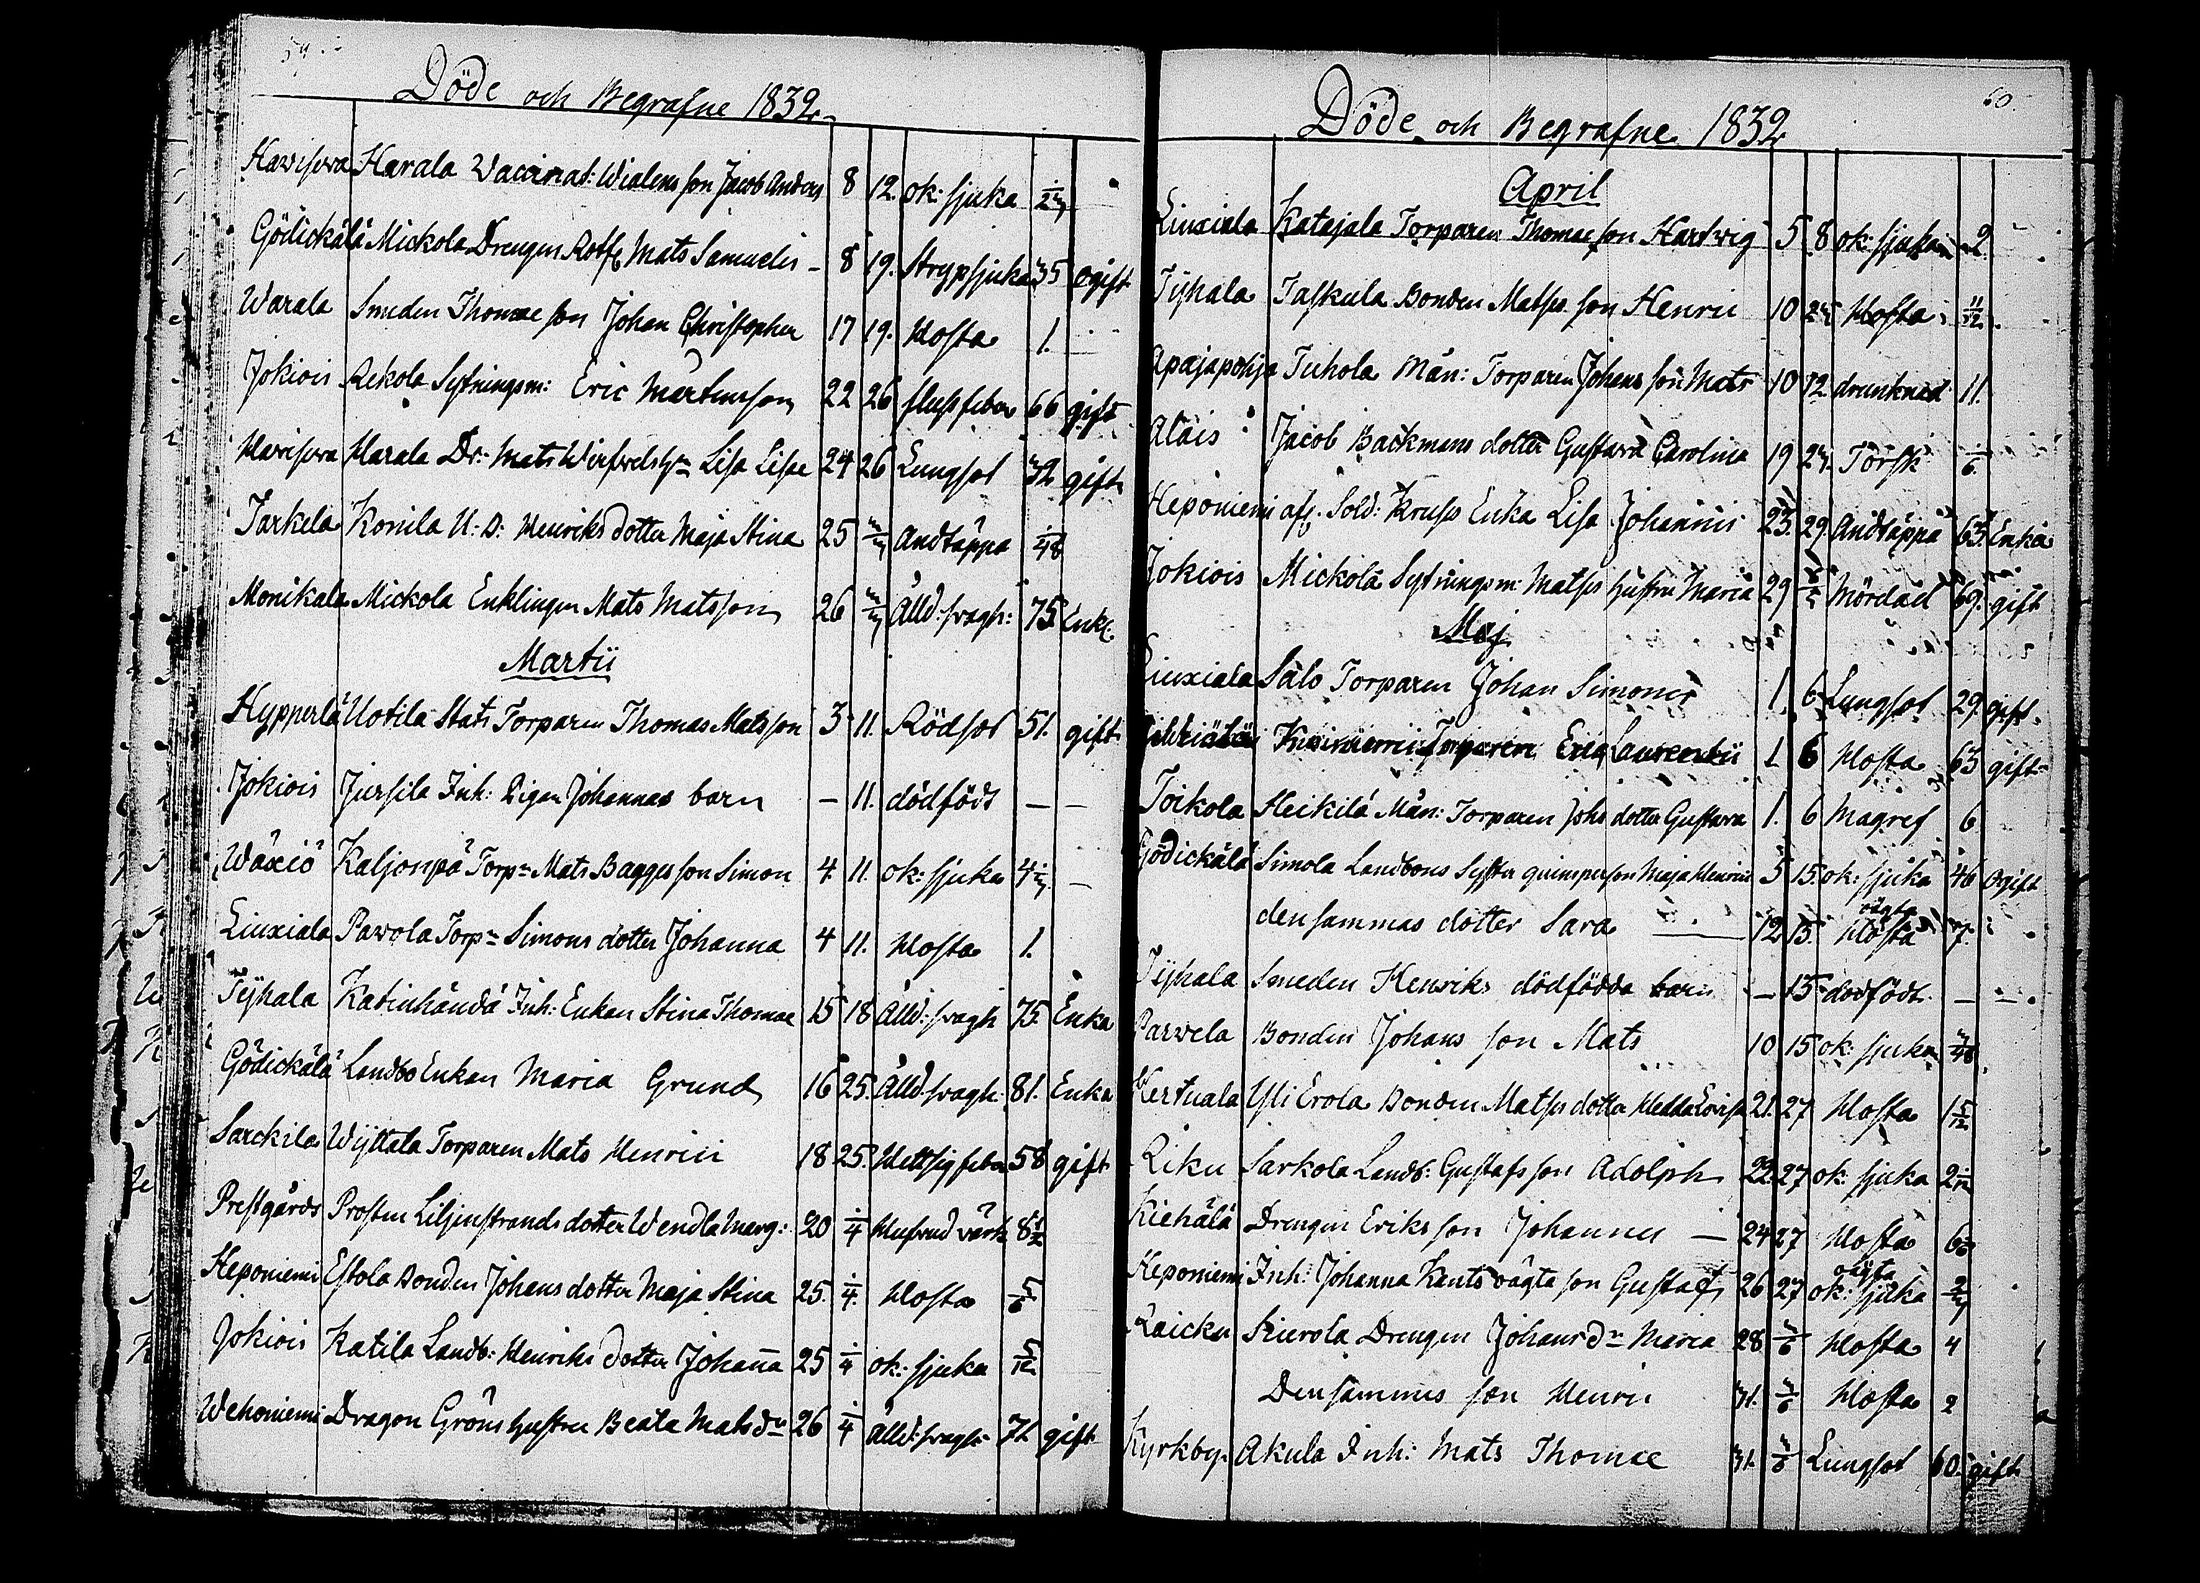 59.
Döde och Begrafne 1832.
Havisova Harala Vaccinat: Wialens son Jacob Anders 8 12. ok: sjuka 1/24
Gödickälä Mickola Drengen Rolfs Mats Samuelis - 8 19. Strypsjuka 35 ogift
Warala Smeden Thomae son Johan Christopher 17 19. Hosta 1.
Jokiois Rekola Sytningsm: Eric Mårtensson 22 26 flussfeber 66 gift
Havisova Harala Dr: Mats Wirfvels H:u Lisa Lisae 24 26 Lungsot 32 gift
Jarkela Konila U. B: Henriks dotter Maja Stina 25 Andtäppa 1/48
Monikala Mickola Enklingen Mats Matsson 26 Ålld: svagh: 75 Enkl.
Martii
Hypperlä Uotila Stats Torparen Thomas Matsson 3 11. Rödsot 51. gift
Jokiois Jussila Inh: Pigan Johannas barn — 11. dödfödt — —
Wäxiö Kaljonpä Torp:n Mats Bagges son Simon 4. 11. ok: sjuka 4 —
Liuxiala Pavola Torp:n Simons dotter Johanna 4 11. Hosta 1.
Tyhala Katinhändä Inh: Enkan Stina Thomae 15 18 Ålld: svagh 75. Enka
Gödickälä Landbo Enkan Maria Grund 16 25. Ålld: svagh: 81. Enka
Sarckila Wyttala Torparen Mats Henrici 18 25. Hettsigfeber 58 gift
Prestgårds Prosten Liljenstrands dotter Wendla Marg: 20 1/4 Hufvud värk 8 1/2
Heponiemi Estola Bonden Johans dotter Maja Stina 25. 1/4. Hosta 5/6
Jokiois Katila Landb: Henriks dotter Johana 25 1/4 ok: sjuka 5/12
Wehoniemi Dragon Gröns hustru Beata Mats d:r 26 1/4 Ålld: svagh 71. gift
60
Döde och Begrafne 1832
April
Liuxiala Katajala Torparen Thomae son Hartvig 5 8 ok: sjuka 2
Tyhala Taskula Bonden Matss son Henric 10 24 Hosta 11/12
Apajapohja Tuhola Män: Torparen Johans son Mats 10 12 drunknad 11.
Atais Jacob Backmans dotter Gustava Carolina 19 24. Torsk 1/6
Heponiemi afs. Sold: Kruss Enka Lisa Johannis 23. 29. Andtäppa 63. Enka
Jokiois Mickola Sytningsm: Matss hustru Maria 29 Mördad 69. gift
Maj
Liuxiala Salo Torparen Johan Simonis 1. 6 Lungsot 29. gift.
Torparen Eric Laurentii 1. 6 Hosta 63 gift
Toikola Heikilä Män: Torparen Johs dotter Gustava 1. 6 Magref 6
Gödickälä Simola Landbons Syster quinsperson Maja Henrici 5 15. ok: sjuka 46 Ogift
densammas dotter Sara — 12 15. oägta Hosta 7.
Tyhala Smeden Henriks dödfödda barn — 15 dödfödt — —
Parvela Bonden Johans son Mats 10 15 ok: sjuka 3/48
Kertuala Yli Erola Bonden Matss dotter Hedda Lovisa 21. 27 Hosta 1 5/12
Riku Sarkola Landb: Gustafs son Adolph 22. 27 ok: sjuka 2 1/12
Kiehälä Drengen Eriks son Johannes — 24 27 Hosta 6
Heponiemi Inh: Johanna Kants oägta son Gustaf 26 27 oägta ok: sjuka 2/4
Raicku Skierola Drengen Johans d:r Maria 28 3/6 Hosta 4
Densammes son Henric 31. 3/6 Hosta 2
Kyrkby. Akula Inh: Mats Thomae 31. 3/6 Lungsot 60. gift